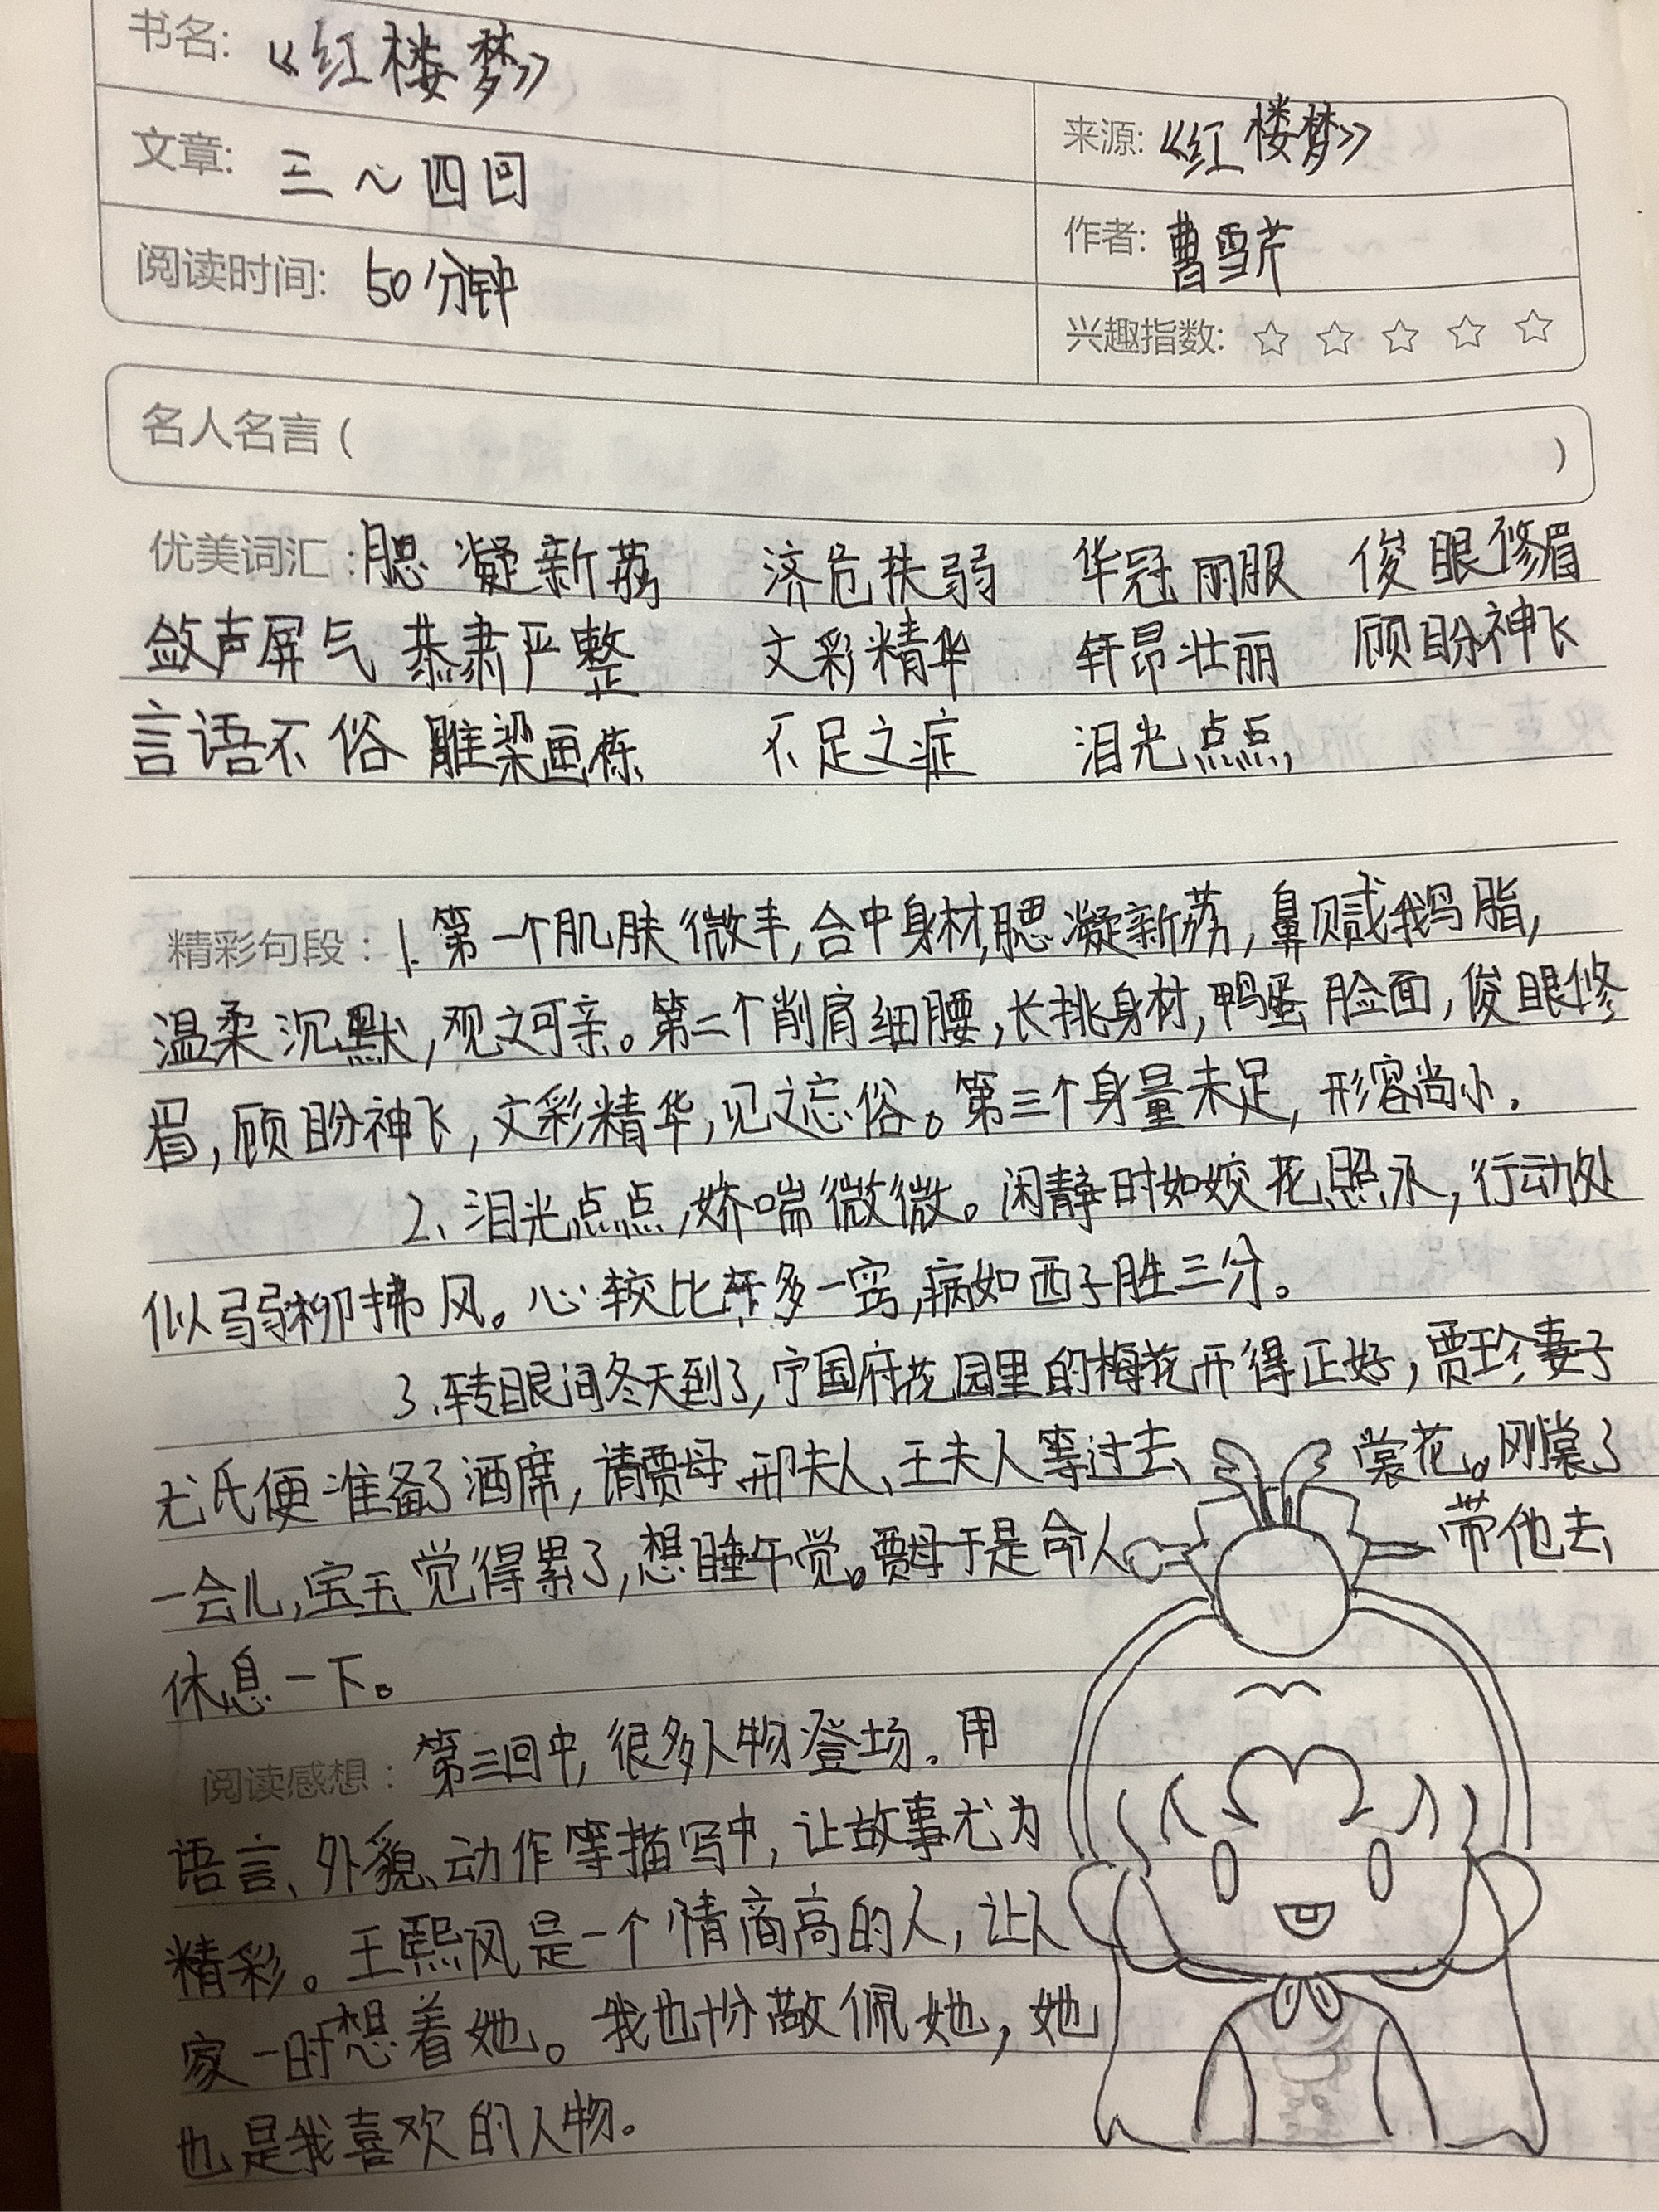 书名: 《红楼梦》
来源: 《红楼梦》
文章: 三~四回
作者: 曹雪芹
阅读时间: 50分钟
兴趣指数: ☆ ☆ ☆ ☆ ☆
名人名言 ( )
优美词汇: 腮凝新荔 济危扶弱 华冠丽服 俊眼修眉
敛声屏气 恭肃严整 文彩精华 轩昂壮丽 顾盼神飞
言语不俗 雕梁画栋 不足之症 泪光点点
精彩句段: 1. 第一个肌肤微丰,合中身材,腮凝新荔,鼻腻鹅脂,
温柔沉默,观之可亲。第二个削肩细腰,长挑身材,鸭蛋脸面,俊眼修
眉,顾盼神飞,文彩精华,见之忘俗。第三个身量未足,形容尚小.
2、泪光点点,娇喘微微。闲静时如姣花照水,行动处
似弱柳拂风。心较比干多一窍,病如西子胜三分。
3、转眼间冬天到了,宁国府花园里的梅花开得正好,贾珍妻子
尤氏便准备了酒席,请贾母、邢夫人、王夫人等过去裳花。刚裳了
一会儿,宝玉觉得累了,想睡午觉。贾母于是命人带他去
休息一下。
阅读感想: 第三回中,很多人物登场.用
语言、外貌、动作等描写中,让故事尤为
精彩。王熙凤是一个情商高的人,让人
家一时想着她。我也十份敬佩她,她
也是我喜欢的人物。